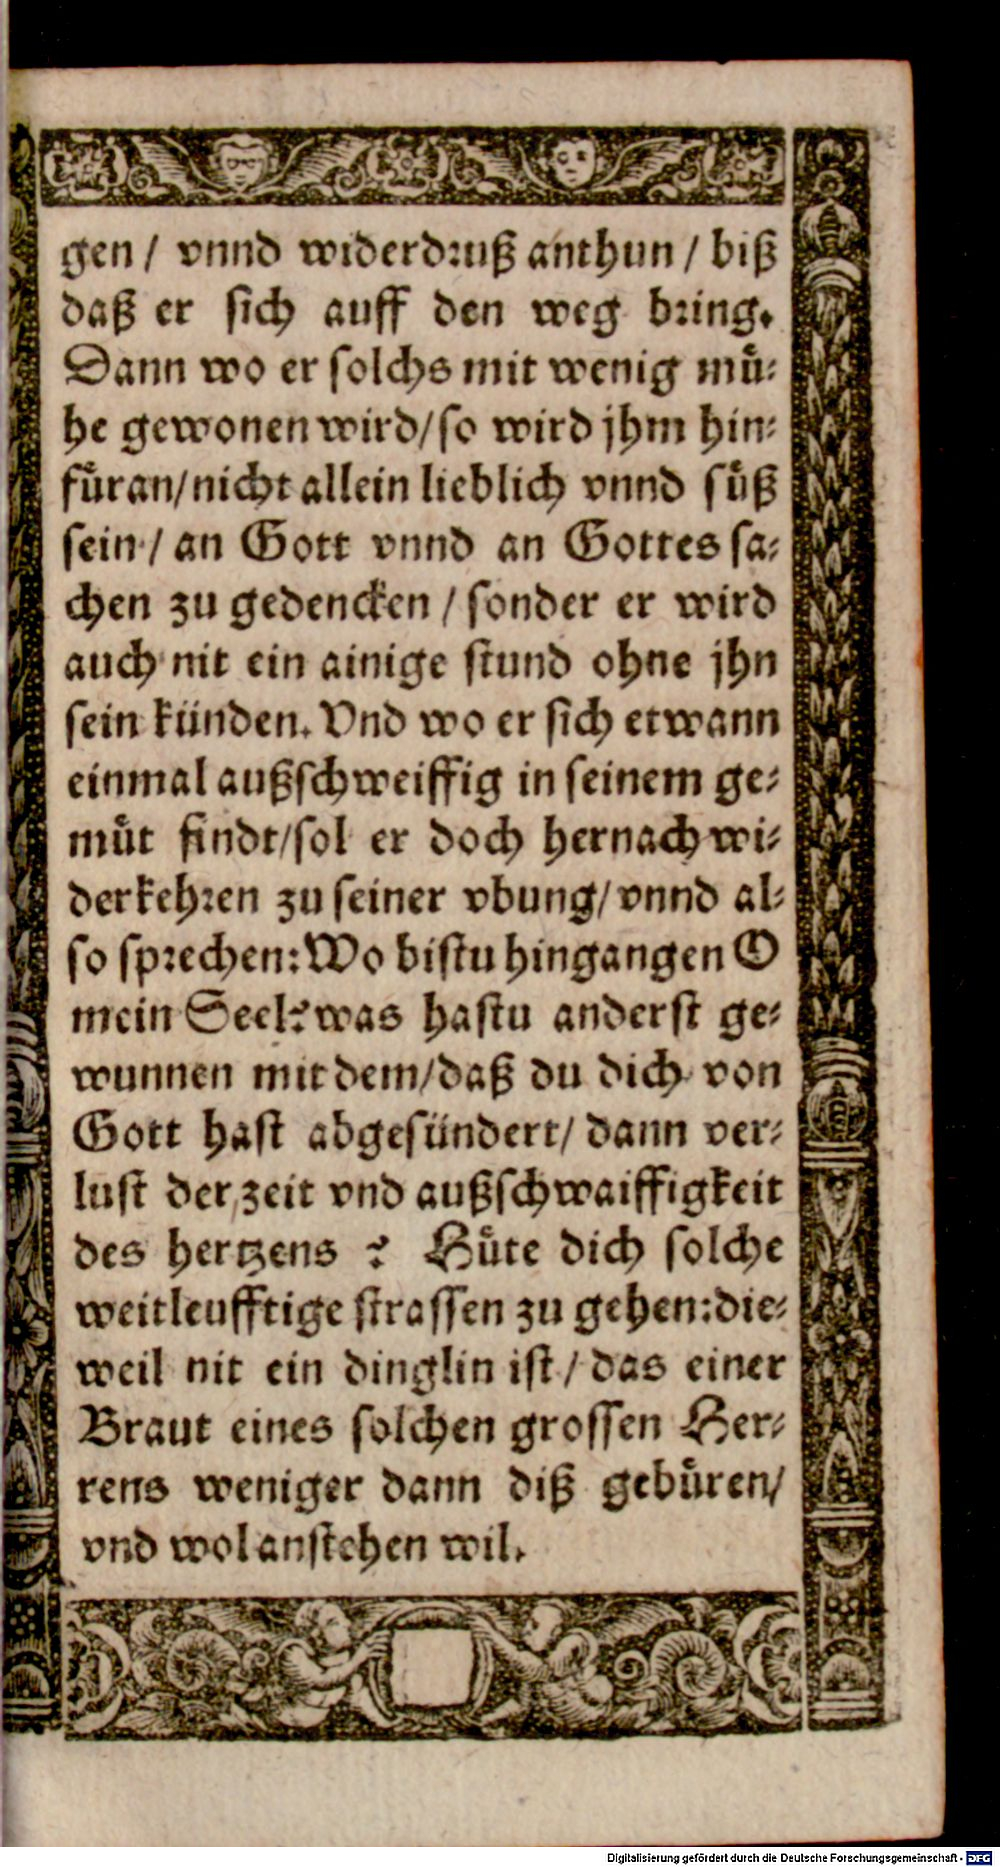 gen / vnnd widerdruß anthun / biß
daß er sich auff den weg bring.
Dann wo er solchs mit wenig muͤ-
he gewonen wird / so wird jhm hin-
fuͤran / nicht allein lieblich vnnd suͤß
sein / an Gott vnnd an Gottes sa-
chen zu gedencken / sonder er wird
auch nit ein ainige stund ohne jhn
sein künden. Vnd wo er sich etwann
einmal außschweiffig in seinem ge-
muͤt findt / sol er doch hernach wi-
derkehren zu seiner vbung / vnnd al-
so sprechen: Wo bistu hingangen O
mein Seel? was hastu anderst ge-
wunnen mit dem / daß du dich von
Gott hast abgesündert / dann ver-
lust der zeit vnd außschwaiffigkeit
des hertzens ? Huͤte dich solche
weitleufftige strassen zu gehen: die-
weil nit ein dinglin ist / das einer
Braut eines solchen grossen Her-
rens weniger dann diß gebuͤren /
vnd wol anstehen wil.
Digitalisierung gefördert durch die Deutsche Forschungsgemeinschaft - DFG